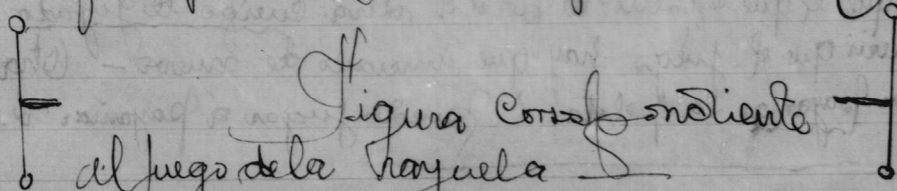 Figura correspondiente
al juego de la rayuela